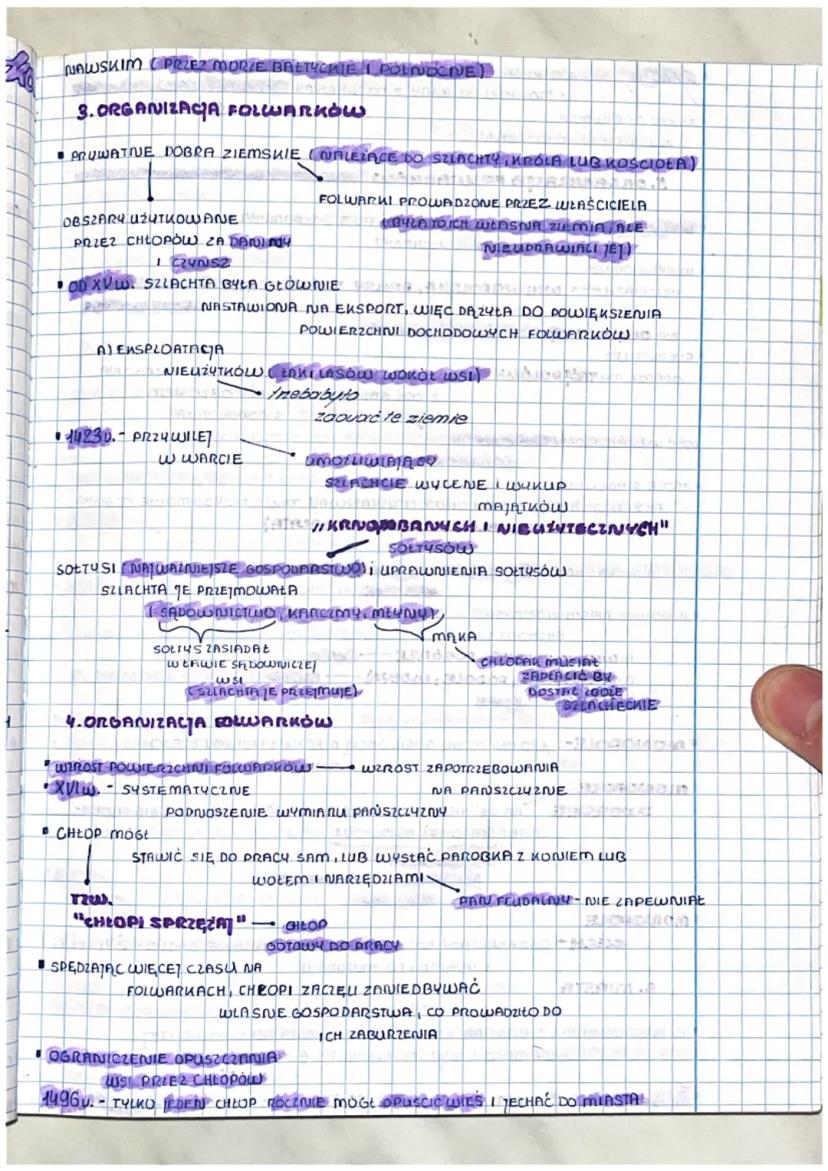 NAWSKIM (PRZEZ MORZE BAŁTYCKIE I PÓŁNOCNE)
3. ORGANIZACJA FOLWARKÓW
• PRYWATNE DOBRA ZIEMSKIE (NALEŻĄCE DO SZLACHTY, KRÓLA LUB KOŚCIOŁA)
FOLWARKI PROWADZONE PRZEZ WŁAŚCICIELA
(BYŁA TO ICH WŁASNA ZIEMIA, ALE
NIE UPRAWIALI JEJ)
OBSZARY UŻYTKOWANE
PRZEZ CHŁOPÓW ZA DANINY
I CZYNSZ
• OD XV w. SZLACHTA BYŁA GŁÓWNIE
NASTAWIONA NA EKSPORT, WIĘC DĄŻYŁA DO POWIĘKSZENIA
POWIERZCHNI DOCHODOWYCH FOLWARKÓW
A) EKSPLOATACJA
NIEUŻYTKÓW (ŁĄK I LASÓW WOKÓŁ WSI)
trzeba było
zaorać te ziemie
• 1423 r. - PRZYWILEJ
W WARCIE
UMOŻLIWIAJĄCY
SZLACHCIE WYCENE I WYKUP
MAJĄTKÓW
"KRNĄBRNYCH I NIEUŻYTECZNYCH"
SOŁTYSÓW
SOŁTYSI (NAJWAŻNIEJSZE GOSPODARSTWO) i UPRAWNIENIA SOŁTYSÓW
SZLACHTA JE PRZEJMOWAŁA
(SĄDOWNICTWO, KARCZMY, MŁYNY)
MĄKA
SOŁTYS ZASIADAŁ
W ŁAWIE SĄDOWNICZEJ
WSI
(SZLACHTA JE PRZEJMUJE)
CHŁOPAK MUSIAŁ
ZAPŁACIĆ BY
DOSTAĆ ZBOŻE
SZLACHECKIE
4. ORGANIZACJA FOLWARKÓW
• WZROST POWIERZCHNI FOLWARKÓW — WZROST ZAPOTRZEBOWANIA
NA PAŃSZCZYZNE
• XVI w. - SYSTEMATYCZNE
PODNOSZENIE WYMIARU PAŃSZCZYZNY
• CHŁOP MÓGŁ
STAWIĆ SIĘ DO PRACY SAM, LUB WYSŁAĆ PAROBKA Z KONIEM LUB
WOŁEM I NARZĘDZIAMI
PAN FEUDALNY - NIE ZAPEWNIAŁ
TZW.
"CHŁOPI SPRZĘŻAJ" — CHŁOP
GOTOWY DO PRACY
• SPĘDZAJĄC WIĘCEJ CZASU NA
FOLWARKACH, CHŁOPI ZACZĘLI ZANIEDBYWAĆ
WŁASNE GOSPODARSTWA, CO PROWADZIŁO DO
ICH ZABURZENIA
• OGRANICZENIE OPUSZCZANIA
WSI PRZEZ CHŁOPÓW
1496 r. - TYLKO JEDEN CHŁOP ROCZNIE MÓGŁ OPUŚCIĆ WIEŚ I JECHAĆ DO MIASTA